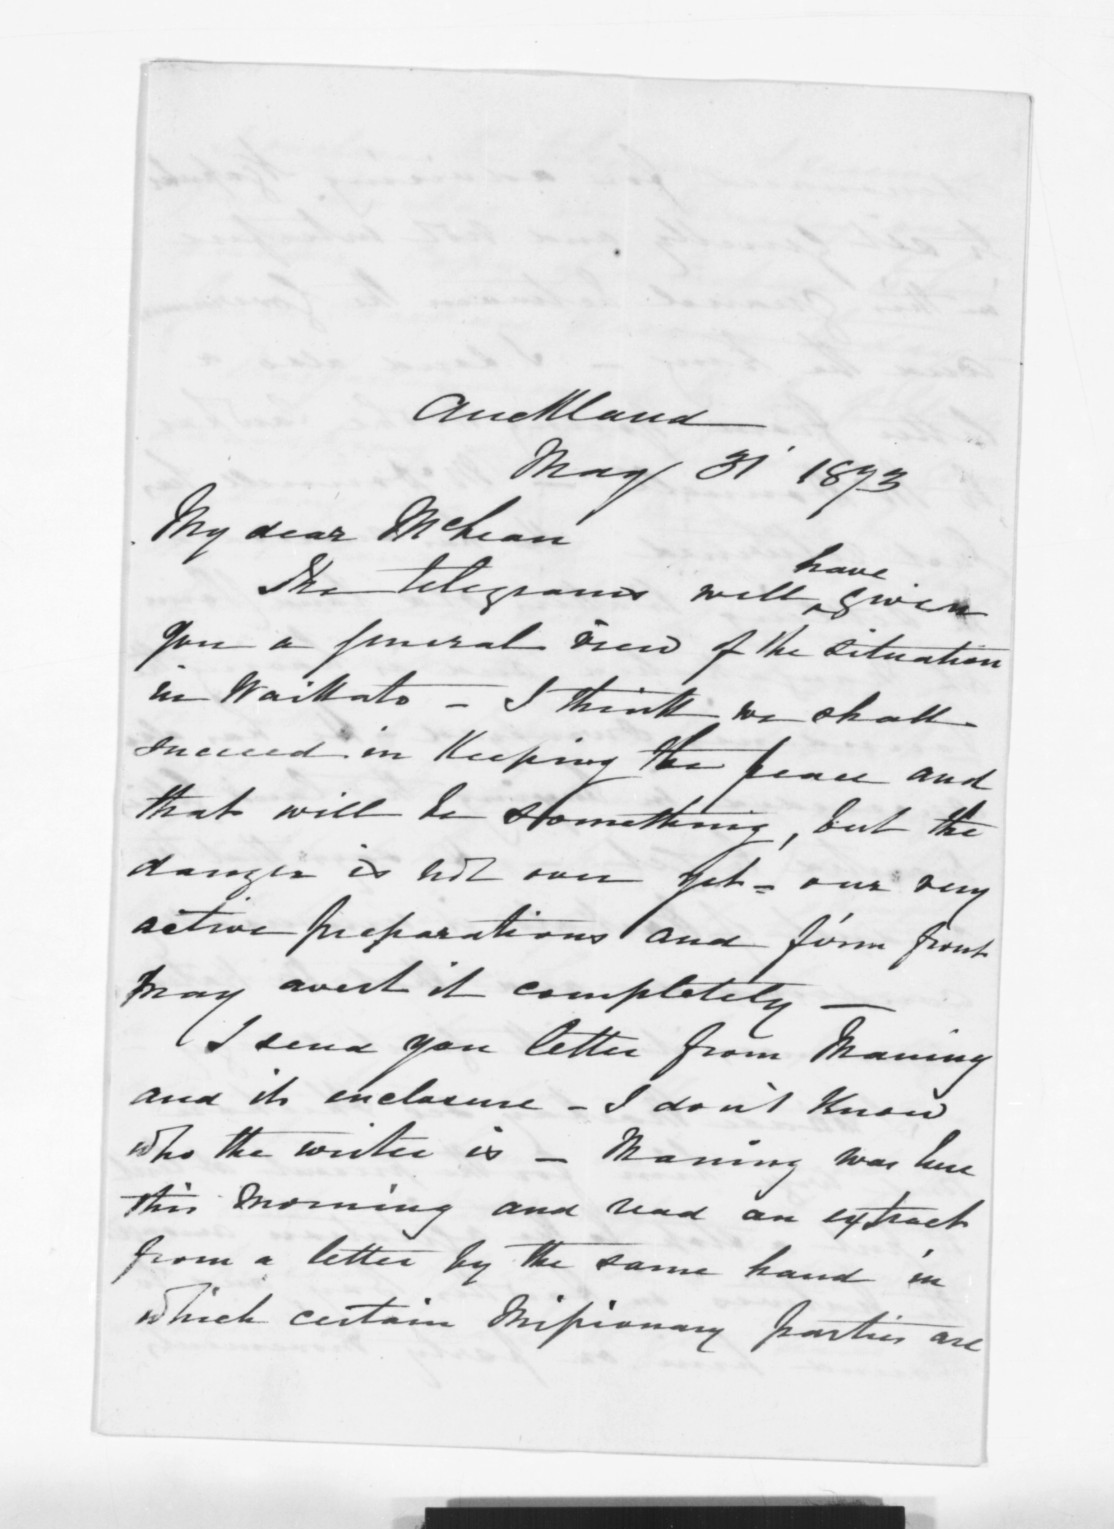 Auckland
May 31 1873
My dear McLean
The telegrams will have given
you a general view of the situation
in Waikato - I think we shall
succeed in keeping the peace and
that will be something, but the
danger is not over yet - our very
active preparations and firm front
may avert it completely -
I send you letter from Maning
and its enclosure - I don't know
who the writer is - Maning was here
this morning and read an extract
from a letter by the same hand in
which certain Missionary parties are